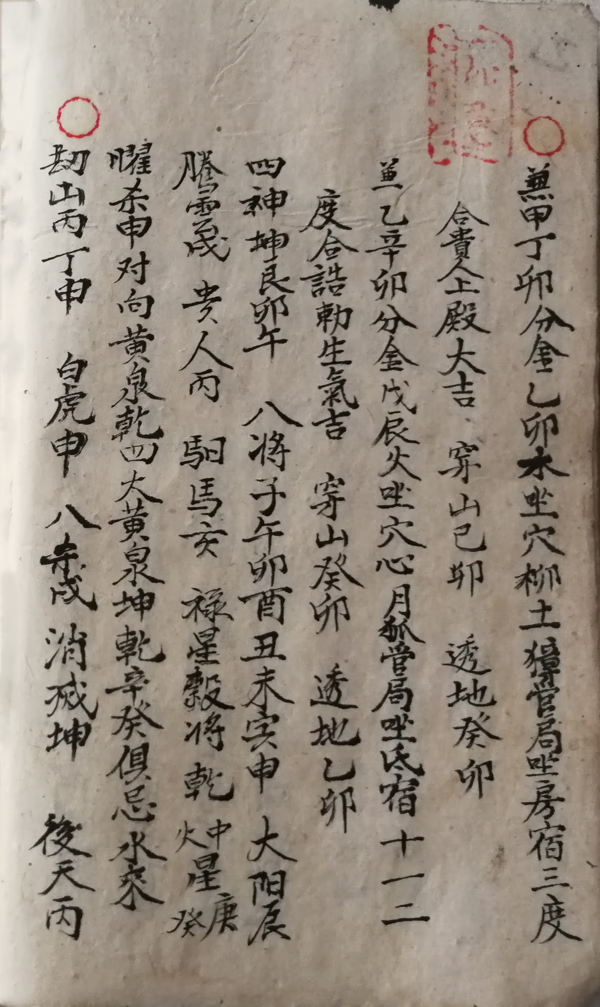 兼甲丁卯分金乙卯水坐穴柳土獐管局坐房宿三度
合貴人上殿大吉 穿山己卯 透地癸卯
兼乙辛卯分金戊辰火坐穴心月狐管局坐氐宿十一二
度合誥勅生氣吉 穿山癸卯 透地乙卯
四神坤艮卯午 八将子午卯酉丑未寅申 大阳辰
騰雲戌 贵人丙 馹馬亥 禄星毅将乾 中星庚 火癸
曜杀申对向黄泉乾四大黄泉坤乾辛癸俱忌水來
刼山丙丁申 白虎申 八寺戌 消滅坤 後天丙